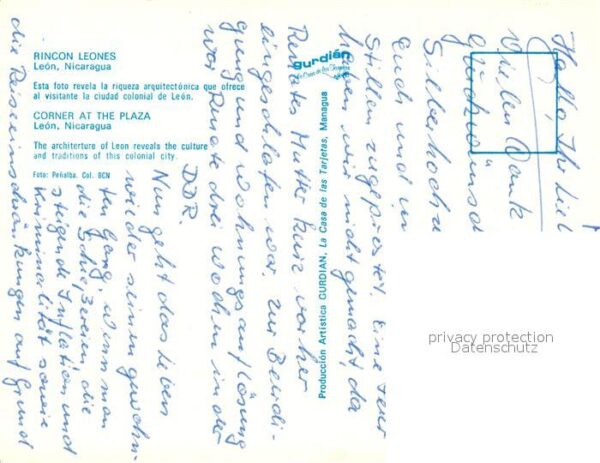 RINCON LEONES
León, Nicaragua
Esta foto revela la riqueza arquitectónica que ofrece
al visitante la ciudad colonial de León.
CORNER AT THE PLAZA
León, Nicaragua
The architerture of Leon reveals the culture
and traditions of this colonial city.
Foto: Peñalba. Col. BCN
gurdián
La Casa de las Tarjetas
Producción Artística GURDIAN, La Casa de las Tarjetas, Managua
Hallo Ihr Lieb
Vielen Dank
Glückwünsch
Silberhochz
Euch und
Stillen zugeprostet. Eine Feier
haben wir nicht gemacht, da
Renates Mutter kurz vorher
eingeschlafen war. Zur Beerdi-
gung und Wohnungsauflösung
war Renate drei Wochen in der
DDR.
Nun geht das Leben
wieder seinen gewohn-
ten Gang, wenn man
die Schießereien, die
steigende Inflation und
Kriminalität sowie
die Reiseeinschränkungen auf Grund
privacy protection
Datenschutz